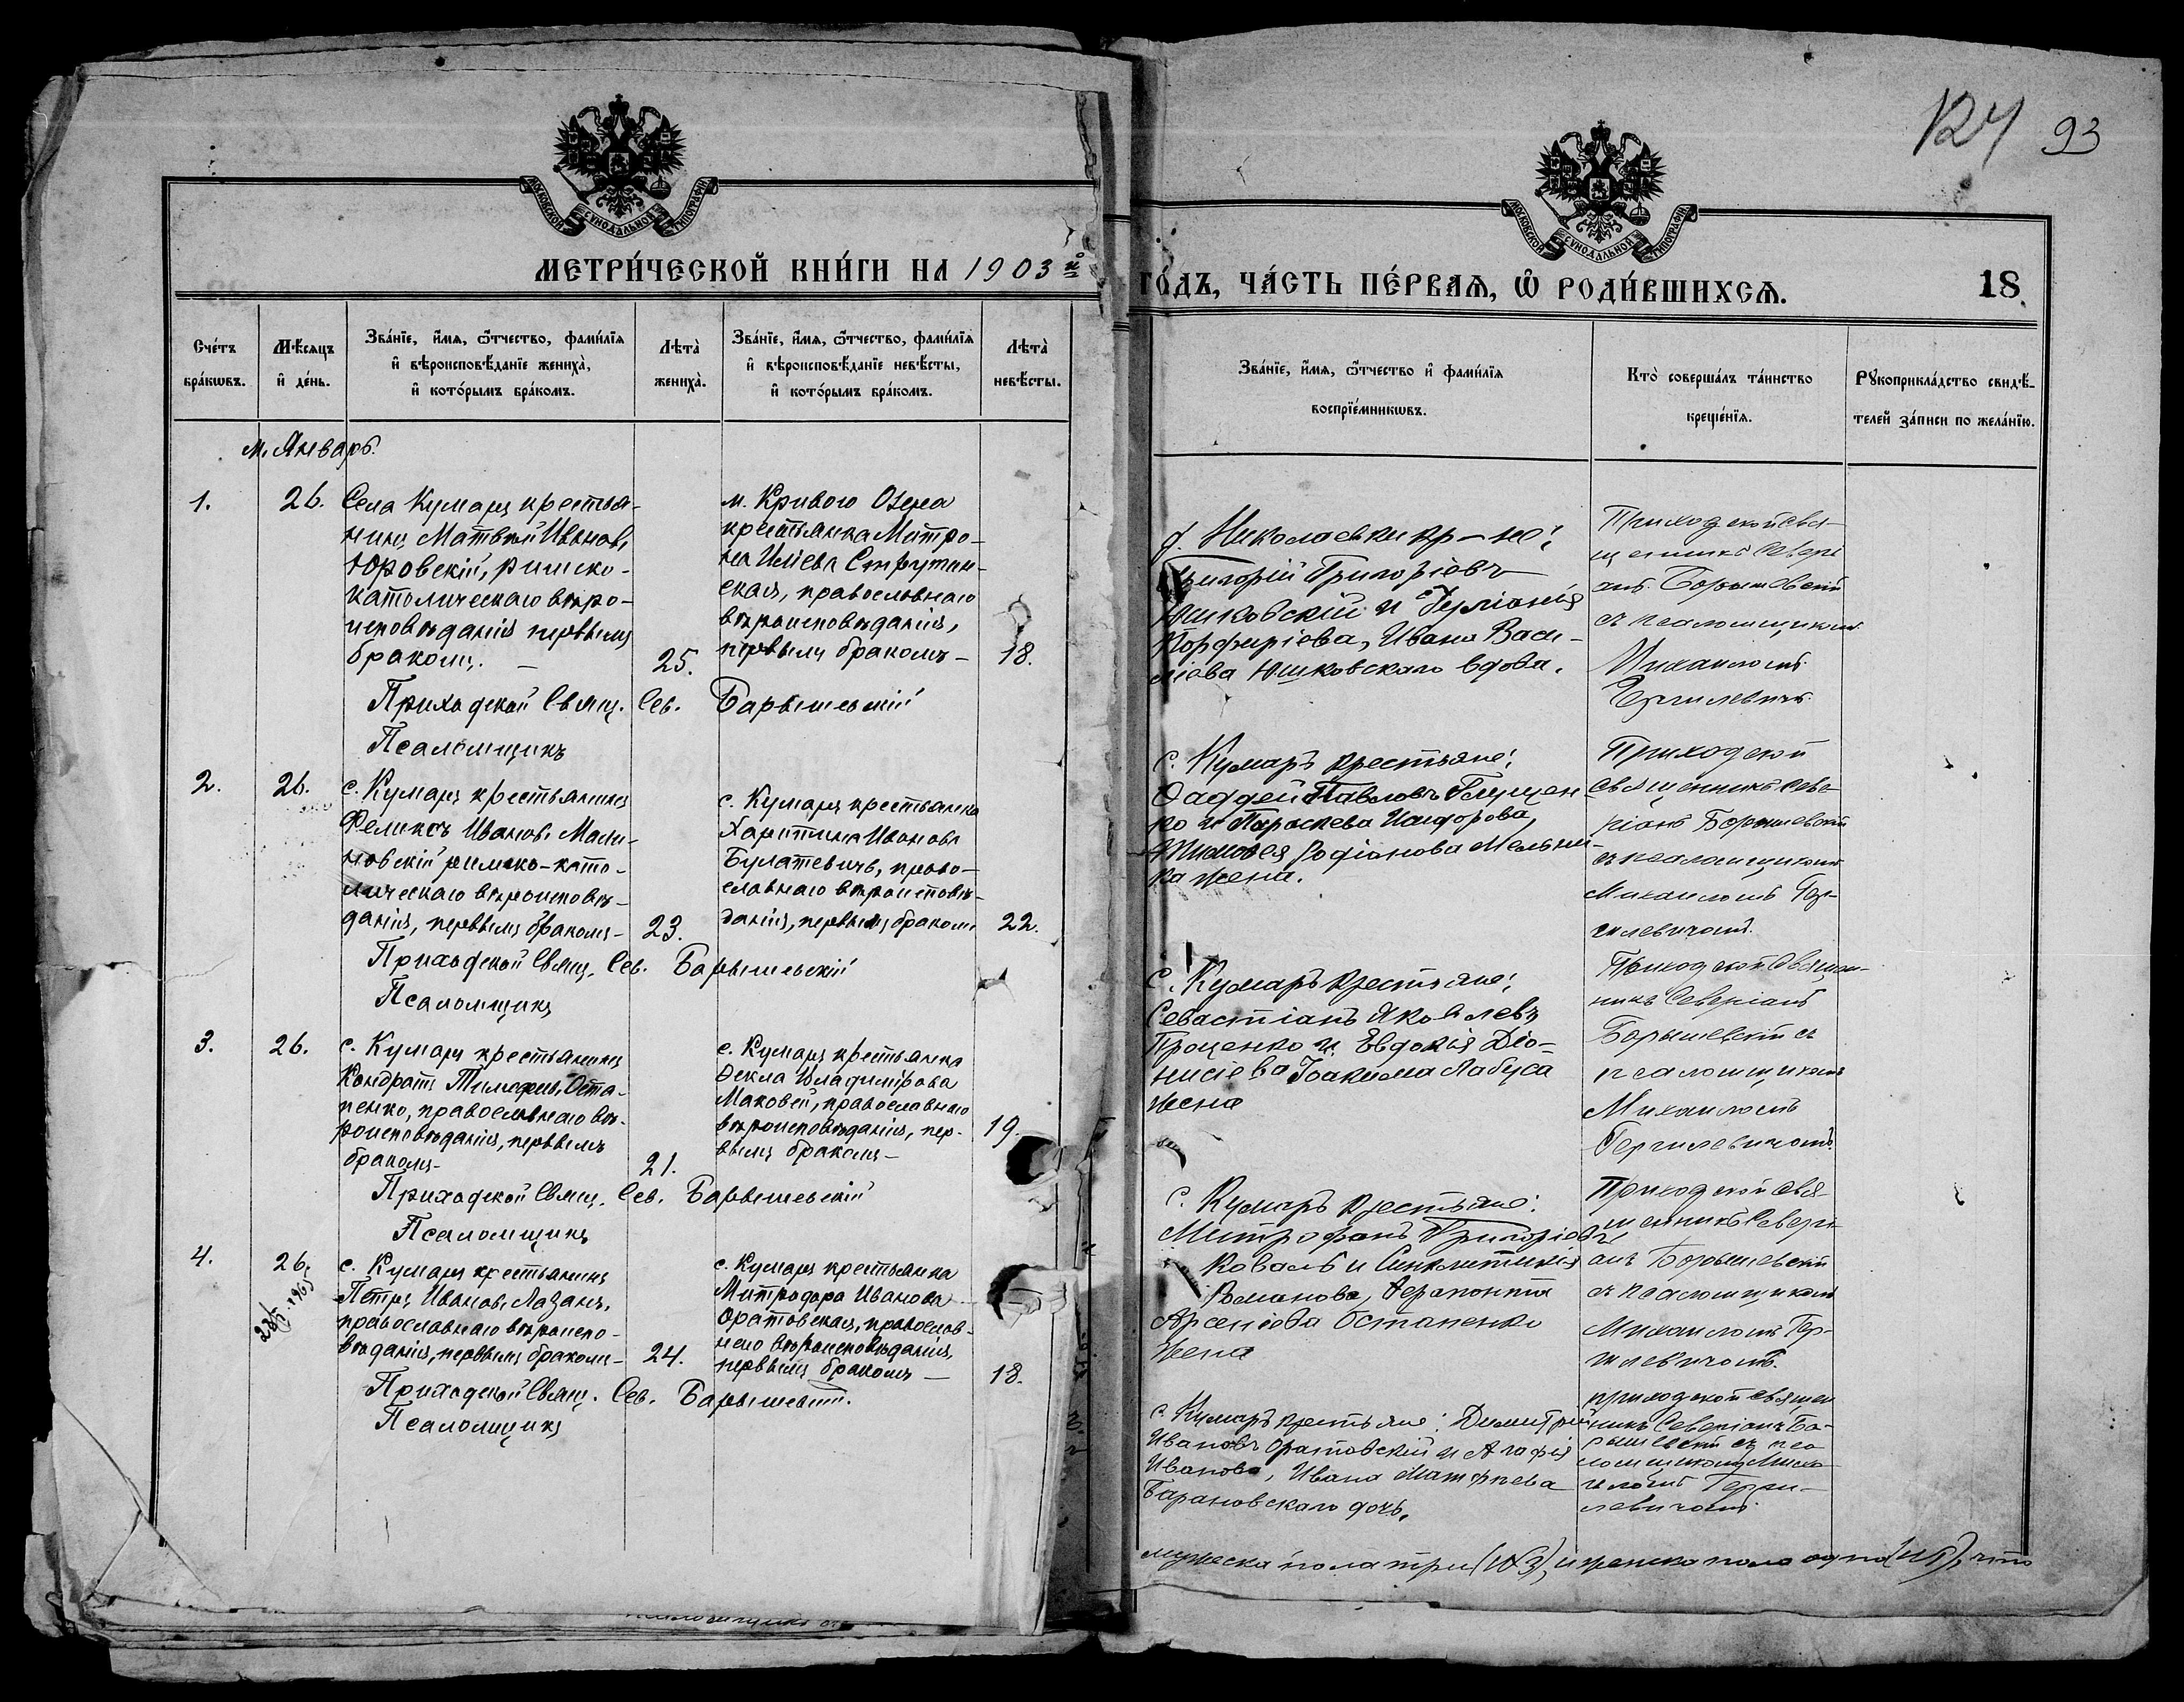 МОСКОВСКОЙ СУНОДАЛЬНОЙ ТИПОГРАФІИ
МЕТРИ́ЧЕСКОЙ КНИ́ГИ НА 1903 й
Сче́тъ бра́кωвъ.
Мѣ́сяцъ и҆ де́нь.
Зва́нїе, и҆́мѧ, ѻ҆́тчество, фами́лїѧ
и҆ вѣроисповѣ́данїе жениха̀,
и҆ кото́рымъ бра́комъ.
Лѣта̀ жениха̀.
Зва́нїе, и҆́мѧ, ѻ҆́тчество, фами́лїѧ
и҆ вѣроисповѣ́данїе невѣ́сты,
и҆ кото́рымъ бра́комъ.
Лѣта̀ невѣ́сты.
м. Январь.
1.
26.
Села Кумаръ крестья-
нинъ Матвѣй Ивановъ
Юровскій, римско-
католическаго вѣро-
исповѣданія первымъ
бракомъ. —
25.
м. Кривого Озера
крестьянка Матро-
на Иліева Струтин-
ская, православнаго
вѣроисповѣданія,
первымъ бракомъ —
18.
Приходской Свящ. Сев. Барышевскій
Псаломщикъ
2.
26.
с. Кумаръ крестьянинъ
Феликсъ Ивановъ Мали-
новскій римско-като-
лическаго вѣроисповѣ-
данія, первымъ бракомъ —
23.
с. Кумаръ крестьянка
Харитина Иванова
Булатевичъ, право-
славнаго вѣроисповѣ-
данія, первымъ бракомъ
22.
Приходской Свящ. Сев. Барышевскій
Псаломщикъ
3.
26.
с. Кумаръ крестьянинъ
Кондратъ Тимофеевъ Оста-
пенко, православнаго вѣ-
роисповѣданія, первымъ
бракомъ —
21.
с. Кумаръ крестьянка
Ѳекла Владимірова
Маковей, православнаго
вѣроисповѣданія, пер-
вымъ бракомъ —
19.
Приходской Свящ. Сев. Барышевскій
Псаломщикъ
4.
26.
с. Кумаръ крестьянинъ
Петръ Ивановъ Лазанъ,
православнаго вѣроиспо-
вѣданія, первымъ бракомъ —
24.
с. Кумаръ крестьянка
Митродора Иванова
Оратовская, православ-
наго вѣроисповѣданія,
первымъ бракомъ —
18.
Приходской Свящ. Сев. Барышевскій.
Псаломщикъ
93
МОСКОВСКОЙ СУНОДАЛЬНОЙ ТИПОГРАФІИ
ГО́ДЪ, ЧА́СТЬ ПЕ́РВАѦ, Ѽ РОДИ́ВШИХСѦ.
18.
Зва́нїе, и҆́мѧ, ѻ҆́тчество и҆ фами́лїѧ
воспрїе́мникωвъ.
Кто̀ соверша́лъ та́инство
креще́нїѧ.
Рꙋкоприкла́дство свидѣ́-
телей за́писи по жела́нїю.
д. Николаевки кр-не:
Григорій Григоріевъ
Юшковскій и Гуліанія
Порфиріева, Ивана Васи-
ліева Юшковскаго вдова.
Приходской свя-
щенникъ Севери-
анъ Барышевскій
съ псаломщикомъ
Михаиломъ
с. Кумаръ крестьяне:
Ѳаддей Павловъ Глущен-
ко и Параскева Исидорова,
Родіонова Мельни-
ка жена.
Приходской
священникъ Севе-
ріанъ Барышевскій
съ псаломщикомъ
Михаиломъ Гер-
гилевичомъ.
с. Кумаръ крестьяне:
Севастіанъ Яковлевъ
Проценко и Евдокія Діо-
нисіева Іоакима Лабуса
жена
Приходской Священ-
никъ Северіанъ
Барышевскій съ
псаломщикомъ
Михаиломъ
Гергилевичомъ.
с. Кумаръ крестьяне:
Митрофанъ Григоріевъ
Коваль и Синклитикія
Романова, Ѳерапонта
Арсеніева Остапенко
жена
Приходской Свя-
щенникъ Севері-
анъ Барышевскій
съ псаломщикомъ
Михаиломъ Гер-
гилевичомъ.
с. Кумаръ крестьяне: Димитрій
Ивановъ Оратовскій и Агафія
Иванова, Ивана Матфѣева
Барановскаго дочь.
приходской священ
никъ Северіанъ Ба-
рышевскій съ пса
ломщикомъ Миха-
иломъ Герги-
левичомъ.
мужеска пола три (№3), и женска пола одно (№1), что